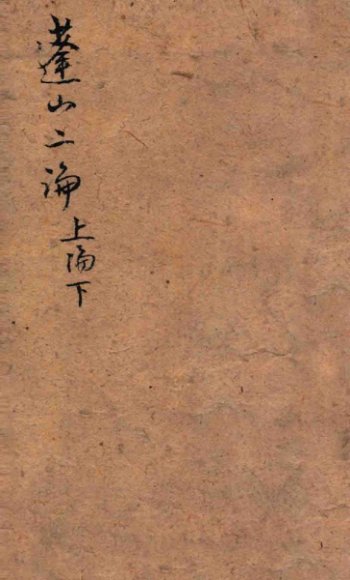 蓬山二論上論下